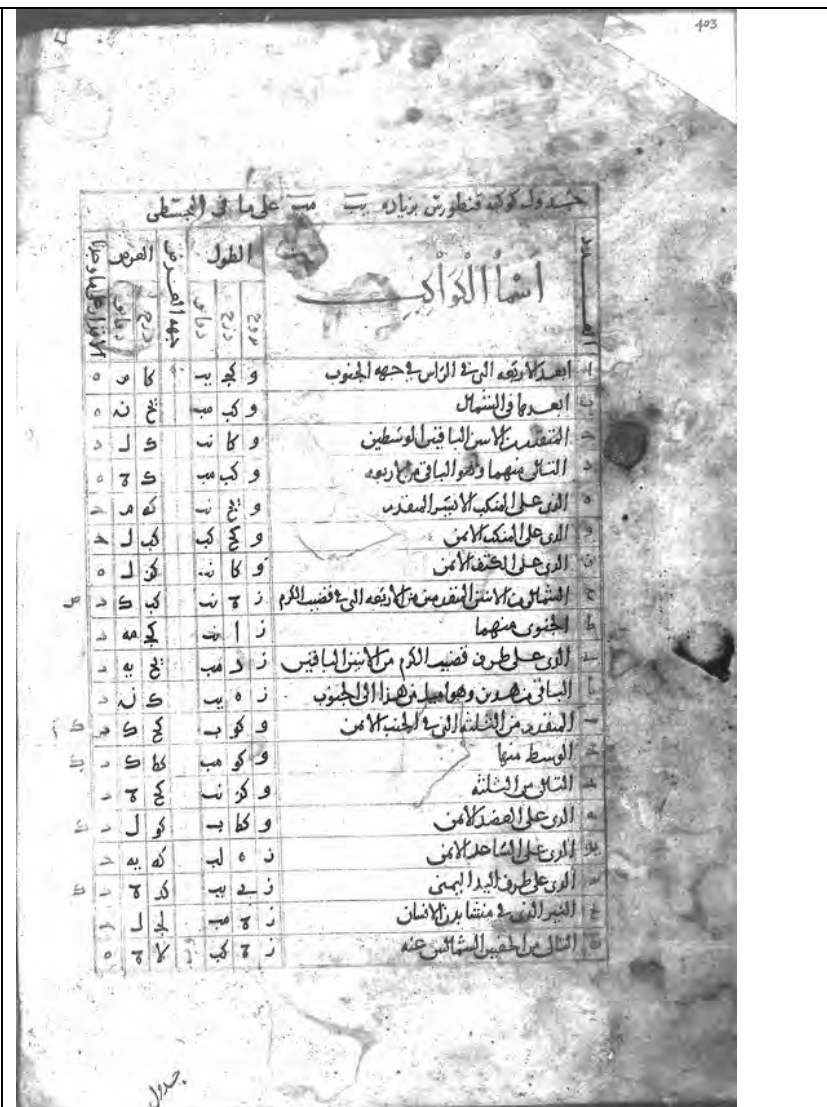 403
جدول كوكبة قنطورس بزيادة يب مب على ما فى المجسطى
العدد
اسماء الكواكب
الطول
جهة العرض
العرض
بروج درج دقائق
درج دقائق
ا ابعد الاربعه التى فى الراس فى جهه الجنوب و كج يب
ب ابعدها فى الشمال و كب مب يح نه ه
ج المتقدم من الاثنين الباقيين الوسطين و كا نب ك ل د
د التالى منهما وهو الباقى من الاربعه و كب مب ك ه
ه الذى على المنكب الايسر المتقدم و يح نب كه م
و الذى على المنكب الايمن و كح كب كب ل
ز الذى على الكتف الايمن و كا نب كز ل ه
ح الشمالى من الاثنين المتقدمين من الاربعه التى فى قضيب الكرم ز نب كب ك د
ط الجنوبى منهما ز ا نب كج مه د
ى الذى على طرف قضيب الكرم من الاثنين الباقيين ز د مب يح يه د
يا الباقى من هذين وهو اميل من هذا الى الجنوب ز ه يب ك ن د
يب المتقدم من الثلثه التى فى الجنب الايمن و كو يب كح ك د
يج الوسط منها و كو مب كط ك د
يد التالى من الثلثه و كز نب كح د
يه الذى على العضد الايمن و كط يب كو ل د
يو الذى على الساعد الايمن ز ه لب كه يه
يز الذى على طرف اليد اليمنى ز ى يب كد د
يح النير الذى فى منشا بدن الانسان ز مب لج ل
يط التالى من الخفيين الشماليين عنه ز كب لا ه
جدول